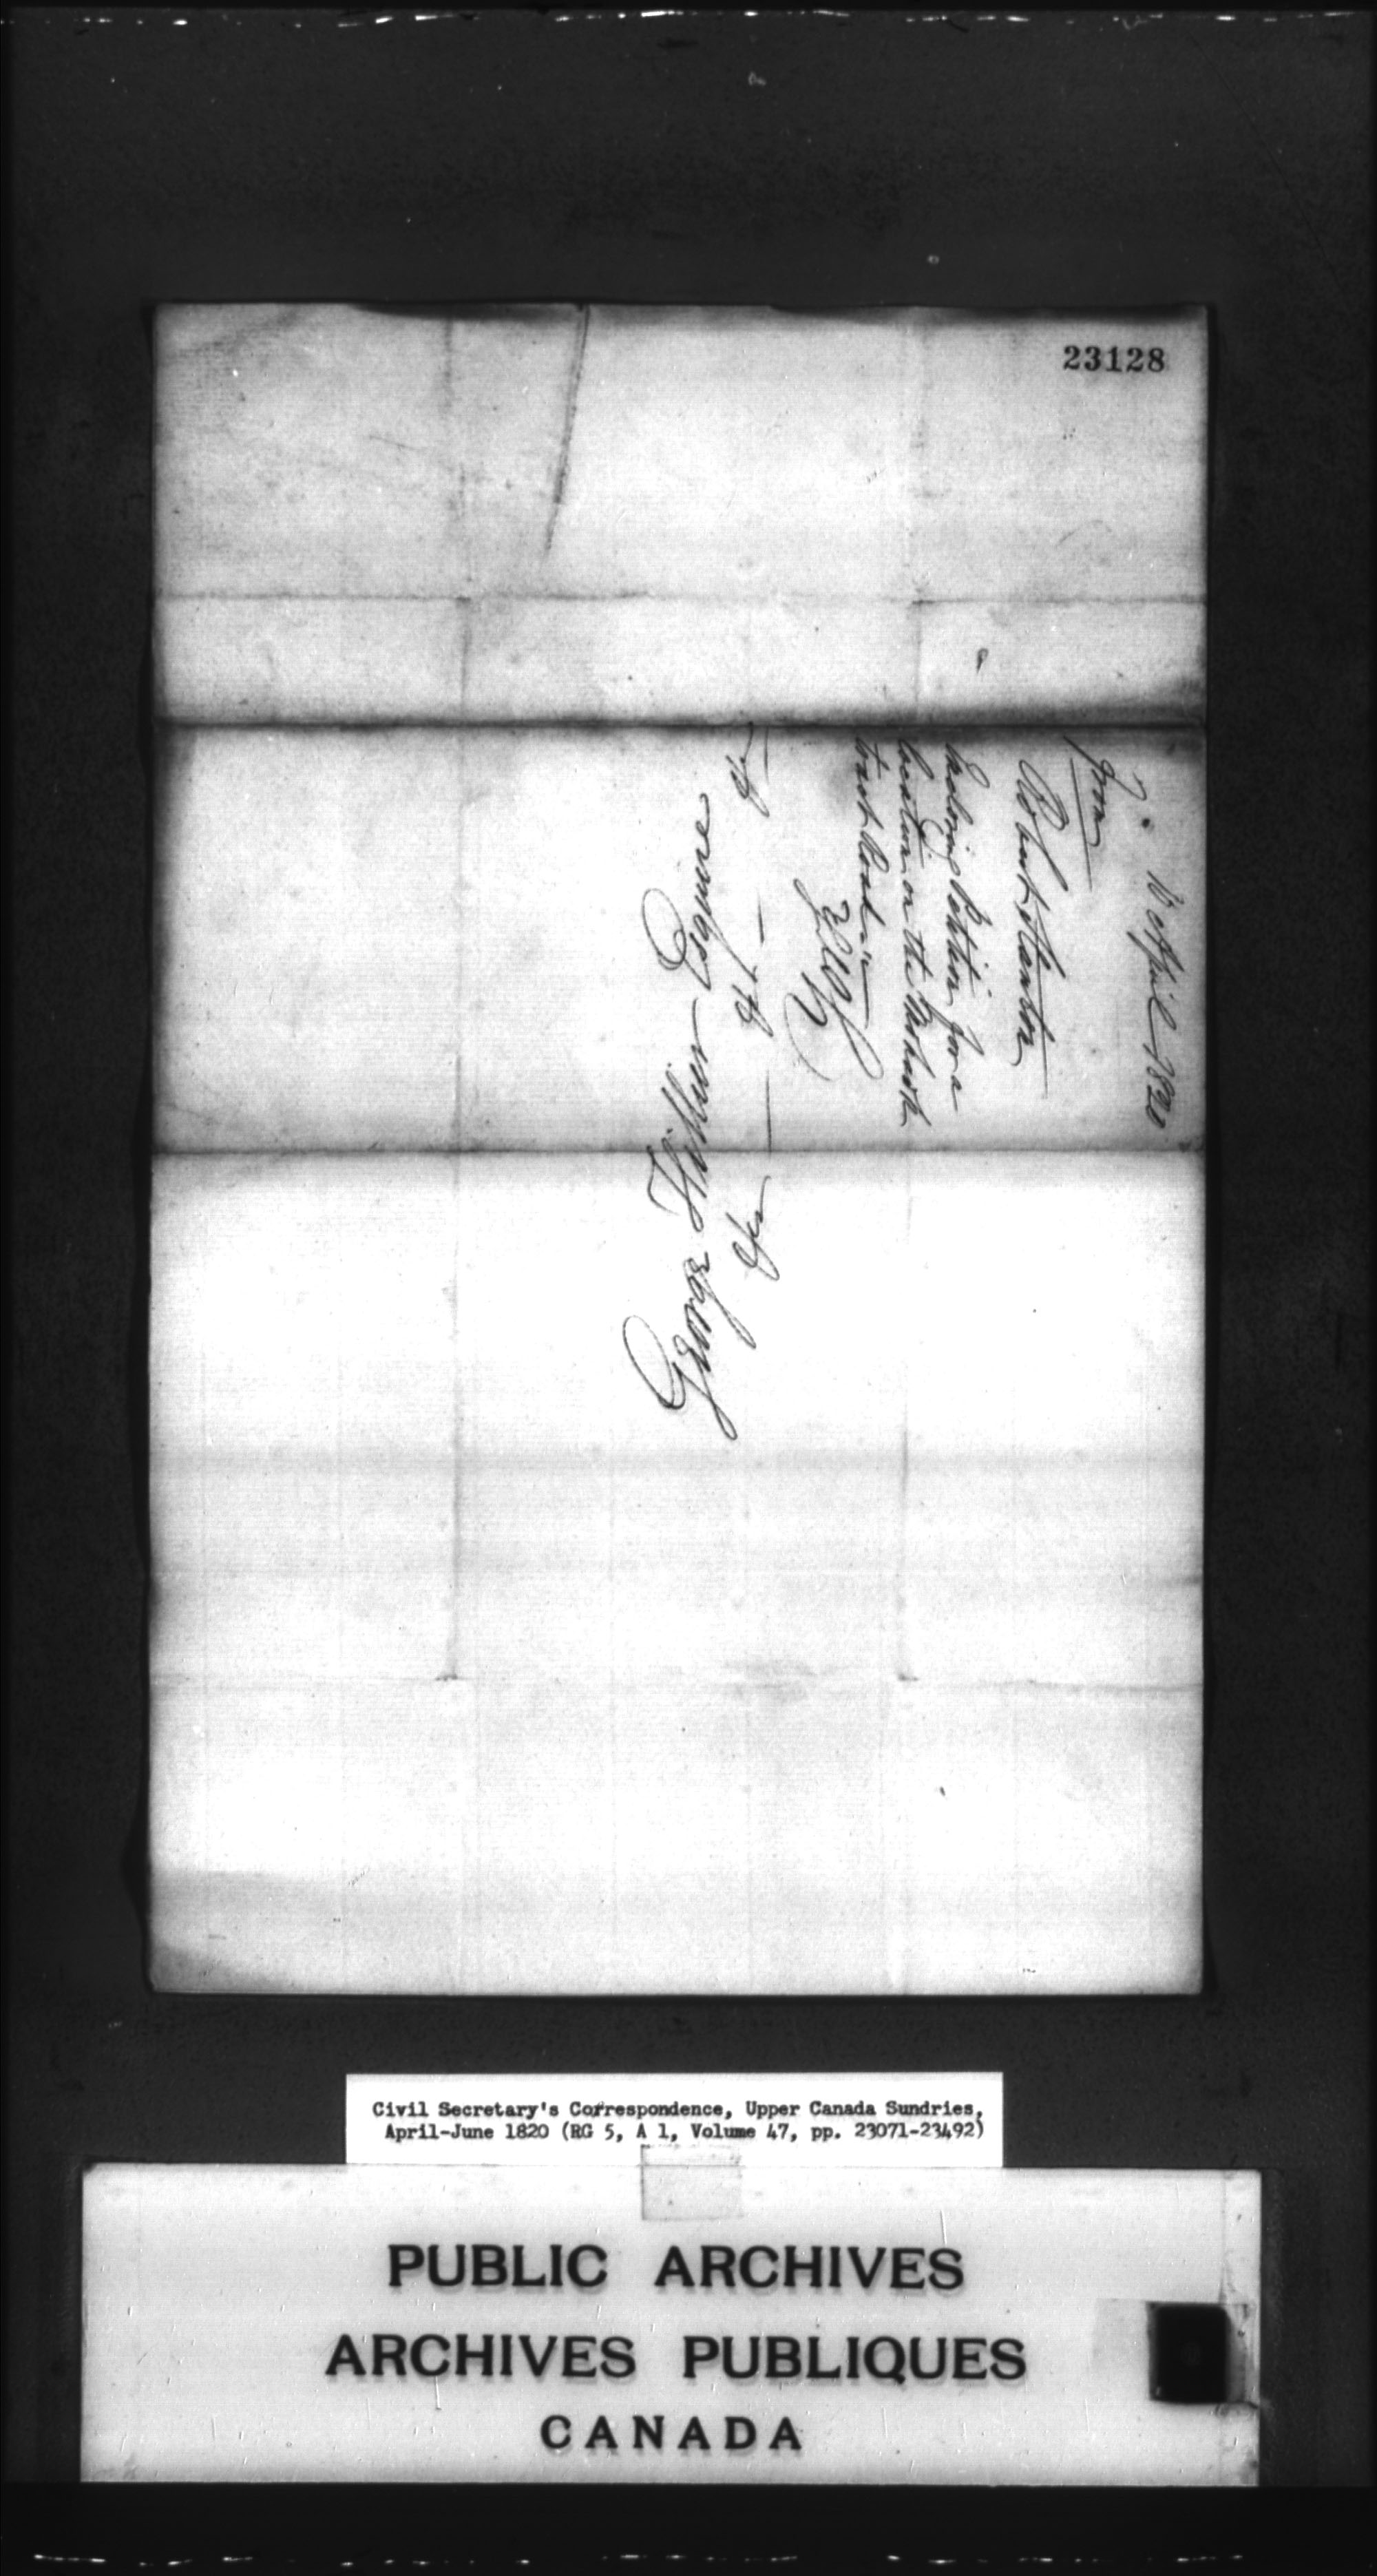 23128
10 April 1820
From
Robert Stanton
inclosing Petition for a
location on the
road
George Hillier Esquire
&c &c &c
York
Civil Secretary's Correspondence, Upper Canada Sundries,
April-June 1820 (RG 5, A 1, Volume 47, pp. 23071-23492)
PUBLIC ARCHIVES
ARCHIVES PUBLIQUES
CANADA